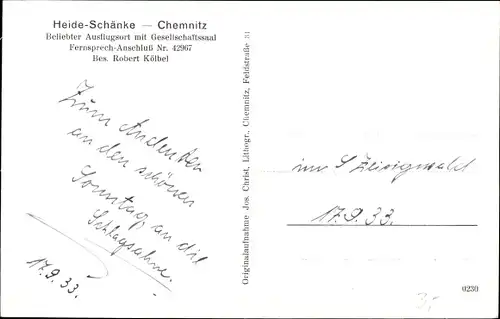 Heide-Schänke — Chemnitz
Beliebter Ausflugsort mit Gesellschaftssaal
Fernsprech-Anschluß Nr. 42967
Bes. Robert Kölbel
Zum Andenken
an den schönen
Sonntag an die
Schlagsahne.
17.9.33.
Originalaufnahme Jos. Christ, Lithogr., Chemnitz, Feldstraße 31
im Zeisigwald
17.9.33.
0230